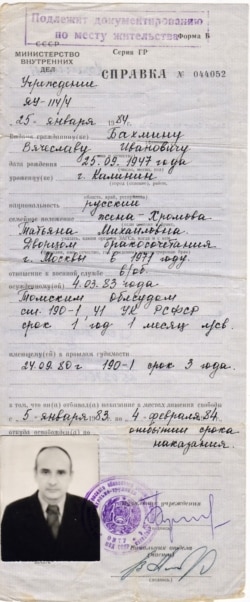 Подлежит документированию
по месту жительства
Форма Б
СССР
МИНИСТЕРСТВО
ВНУТРЕННИХ
ДЕЛ
Серия ГР
СПРАВКА № 044052
Учреждение
ЯУ-114/4
25 января 1984.
Выдана гражданину(ке) Бахмину
Вячеславу Ивановичу
дата рождения 25.09.1947 года
уроженцу(ке) г. Калинин
национальность русский
семейное положение жена-Хромова
Татьяна Михайловна
Дворцом бракосочетания
г. Москвы в 1971 году.
отношение к военной службе в/об.
осужденному(ой) 4.03.83 года
Томским облсудом
ст. 190-1 ч1 УК РСФСР
срок 1 год 1 месяц л/св.
имеющему(ей) в прошлом судимости
24.09.80 г. 190-1 срок 3 года.
в том, что он(а) отбывал(а) наказание в местах лишения свободы
с 5 января 83. по 4 февраля 84.
откуда освобожден(а) по отбытии срока
наказания.
учреждения
Начальник отдела
(части)